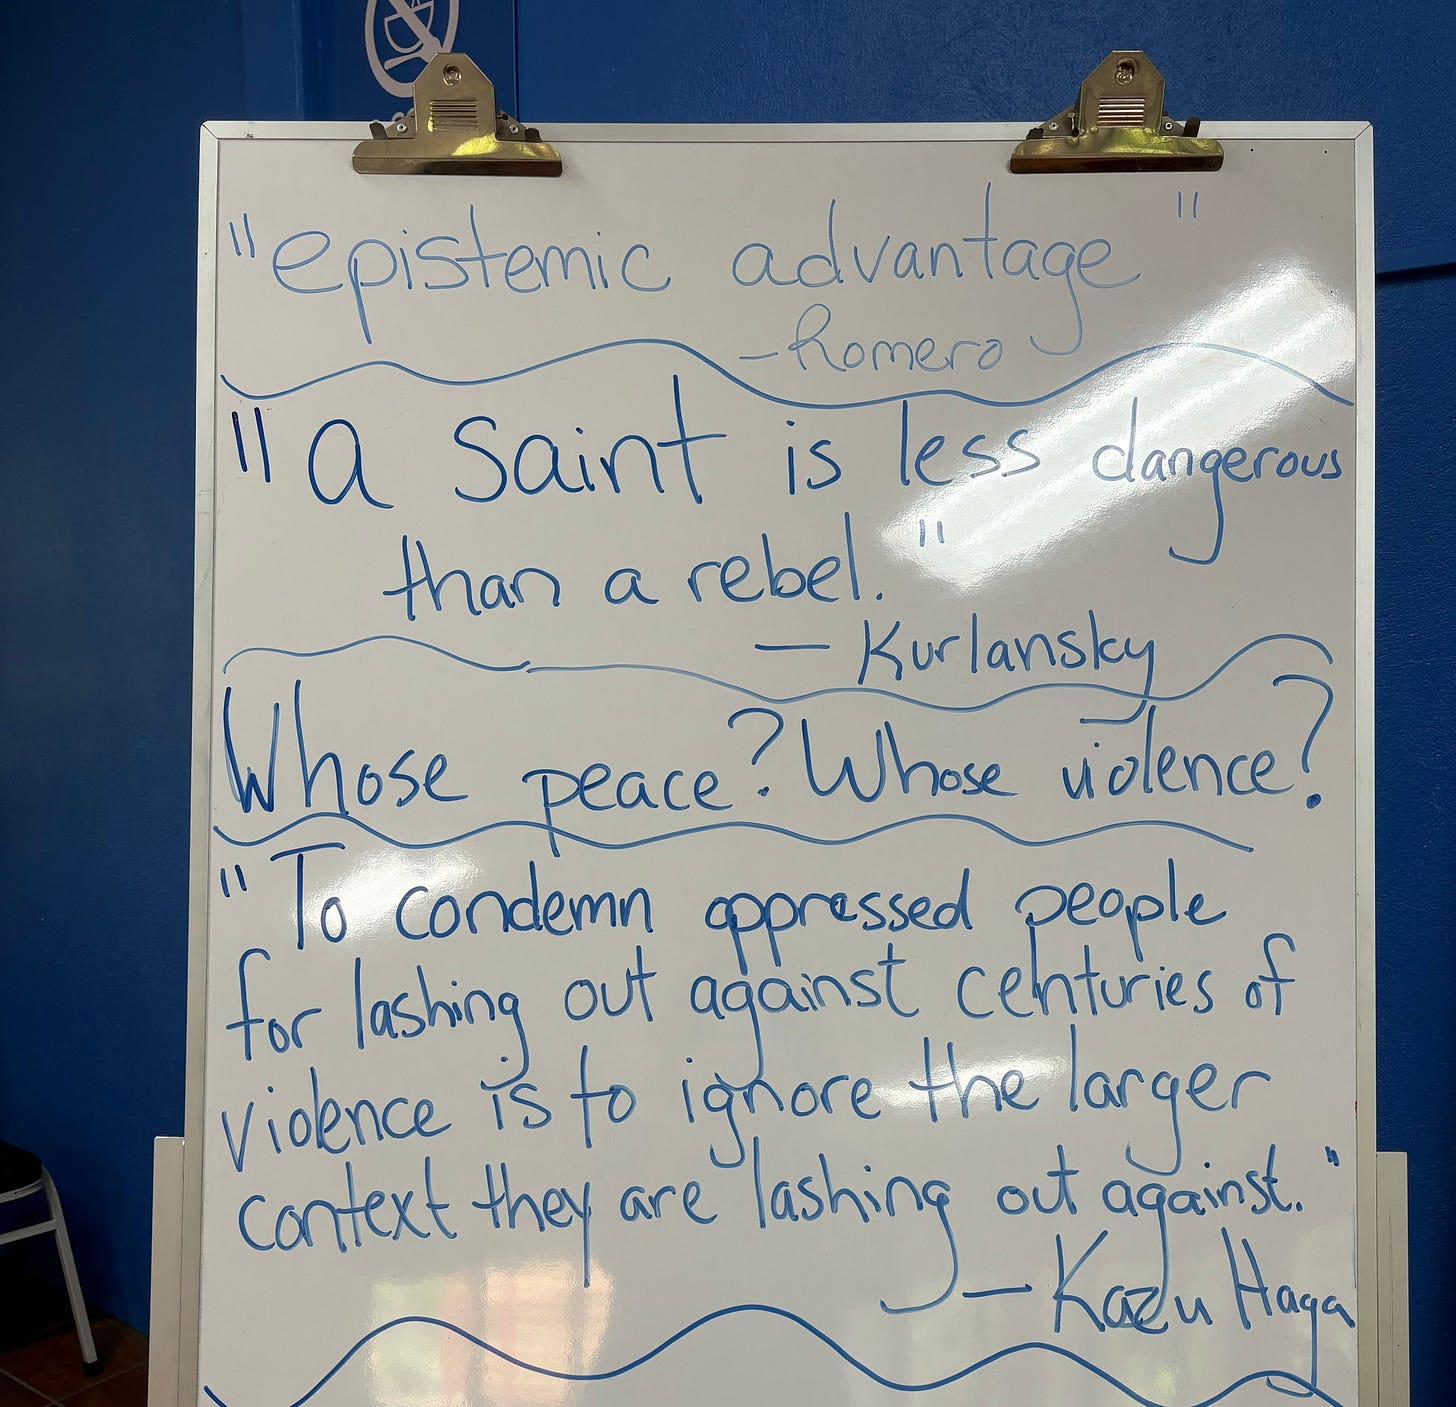 "epistemic advantage"
-Romero
"a saint is less dangerous
than a rebel."
— Kurlansky
Whose peace? Whose violence?
"To condemn oppressed people
for lashing out against centuries of
violence is to ignore the larger
context they are lashing out against."
— Kazu Haga